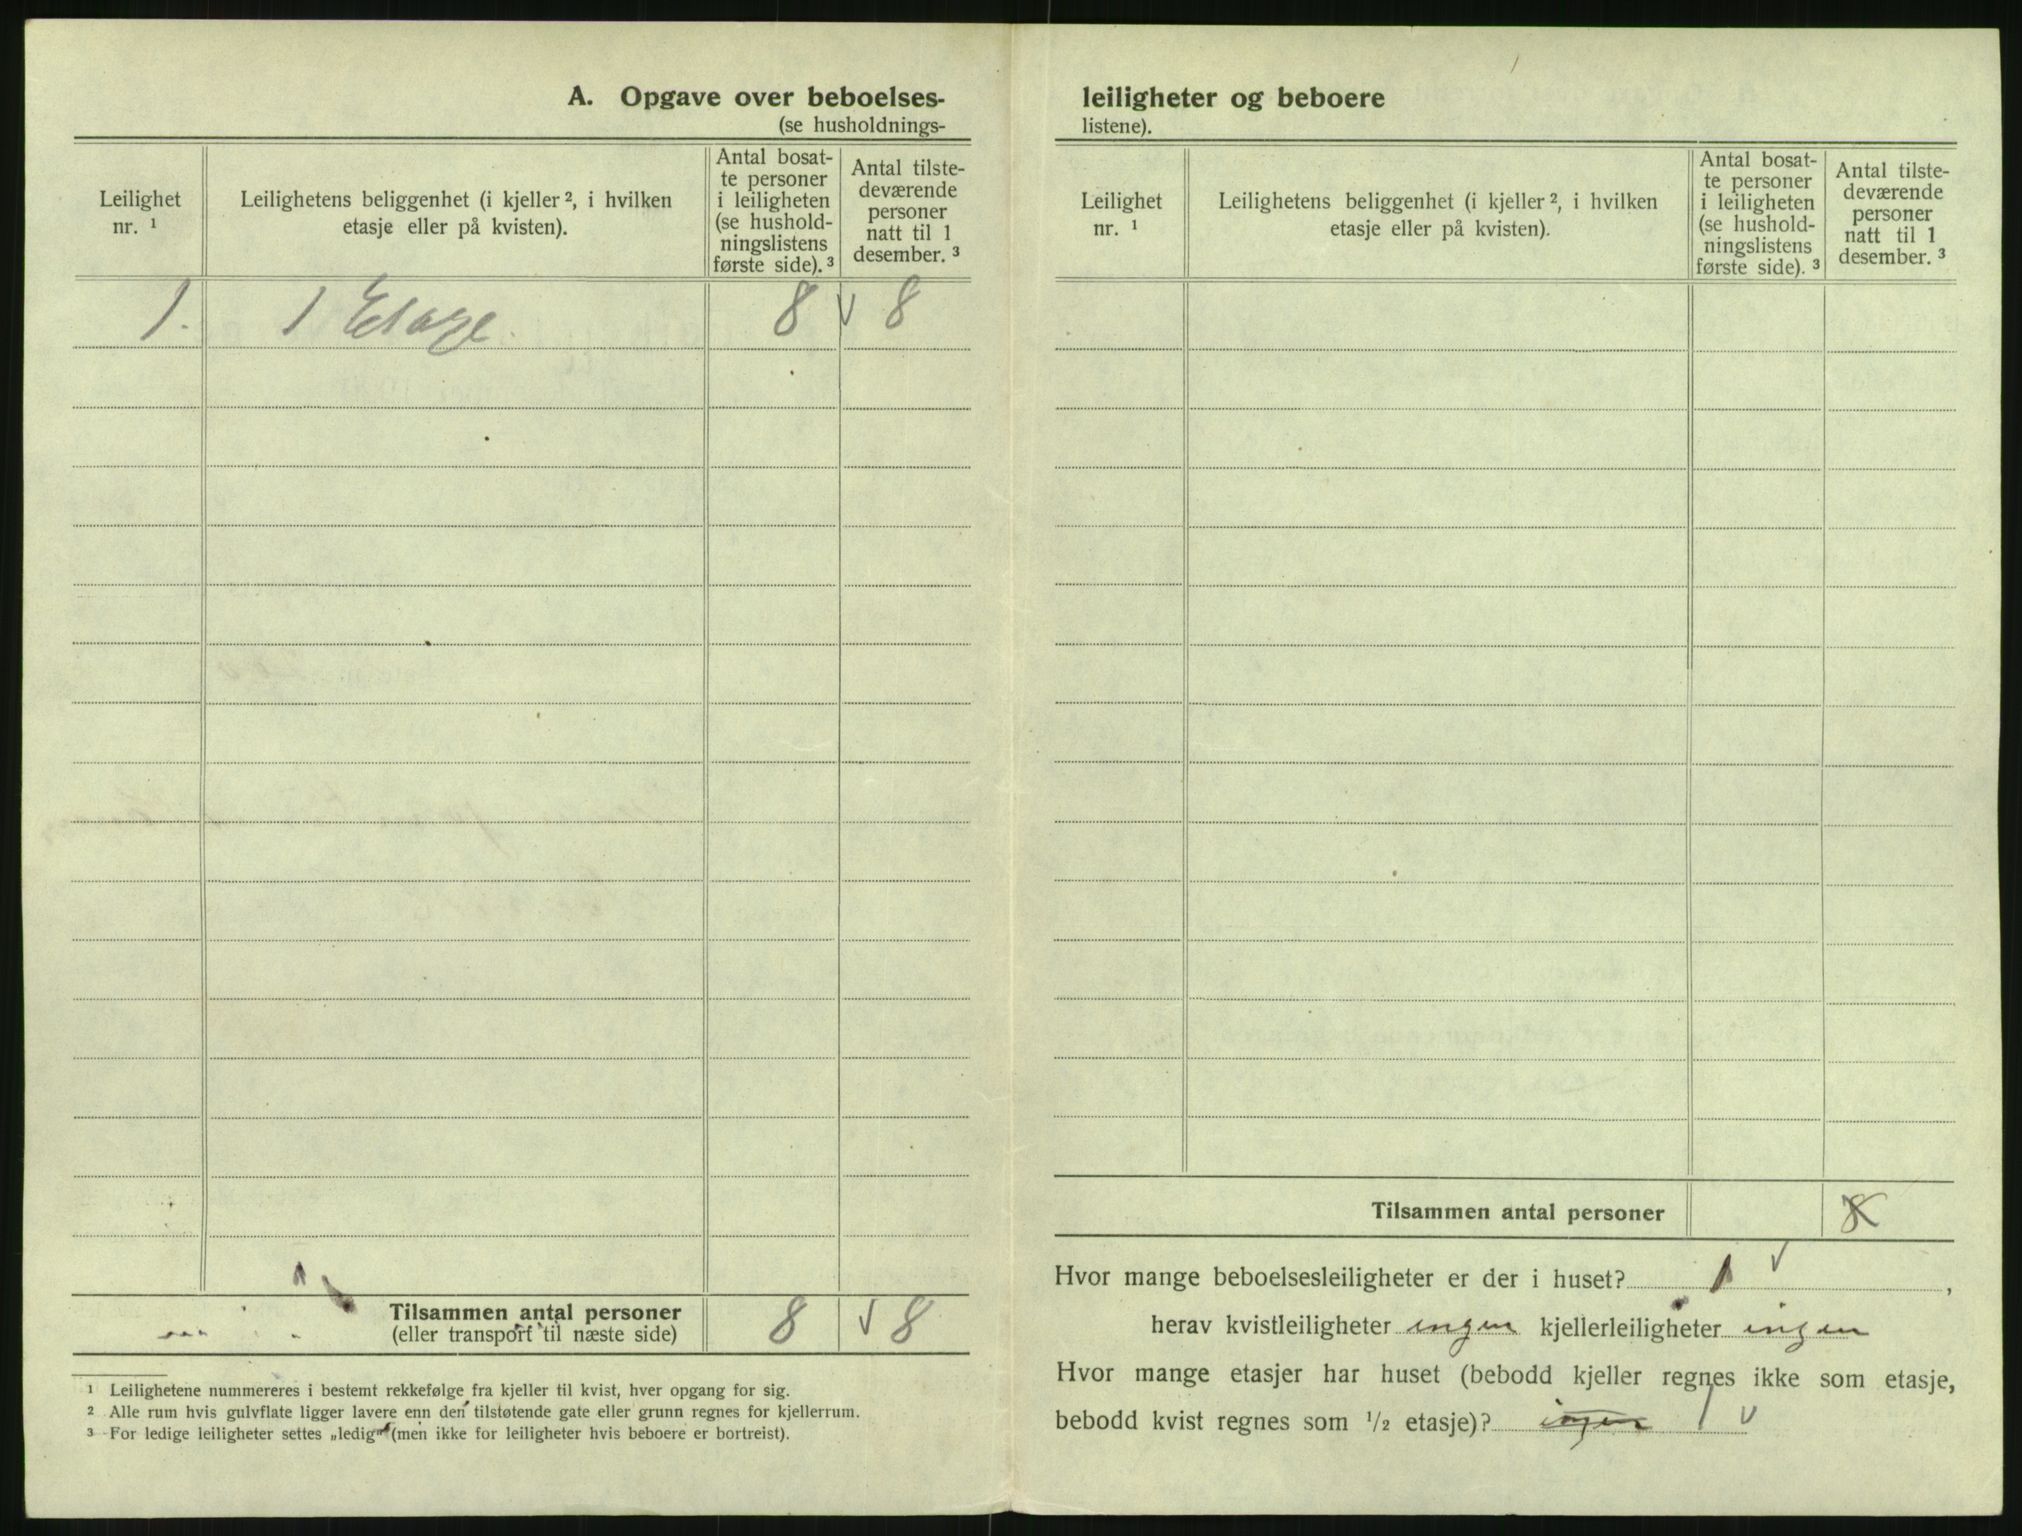 A. Opgave over beboelses-
(se husholdnings-
Leilighet
nr. ¹
Leilighetens beliggenhet (i kjeller ², i hvilken
etasje eller på kvisten).
Antal bosat-
te personer
i leiligheten
(se hushold-
ningslistens
første side). ³
Antal tilste-
deværende
personer
natt til 1
desember. ³
1. 1 Etage. 8 √ 8
Tilsammen antal personer
(eller transport til næste side)
8 √ 8
¹ Leilighetene nummereres i bestemt rekkefølge fra kjeller til kvist, hver opgang for sig.
² Alle rum hvis gulvflate ligger lavere enn den tilstøtende gate eller grunn regnes for kjellerrum.
³ For ledige leiligheter settes „ledig" (men ikke for leiligheter hvis beboere er bortreist).
leiligheter og beboere
listene).
Leilighet
nr. ¹
Leilighetens beliggenhet (i kjeller ², i hvilken
etasje eller på kvisten).
Antal bosat-
te personer
i leiligheten
(se hushold-
ningslistens
første side). ³
Antal tilste-
deværende
personer
natt til 1
desember. ³
Tilsammen antal personer 8
Hvor mange beboelsesleiligheter er der i huset? 1 √ ,
herav kvistleiligheter ingen kjellerleiligheter ingen
Hvor mange etasjer har huset (bebodd kjeller regnes ikke som etasje,
bebodd kvist regnes som ½ etasje)? ingen 1 √